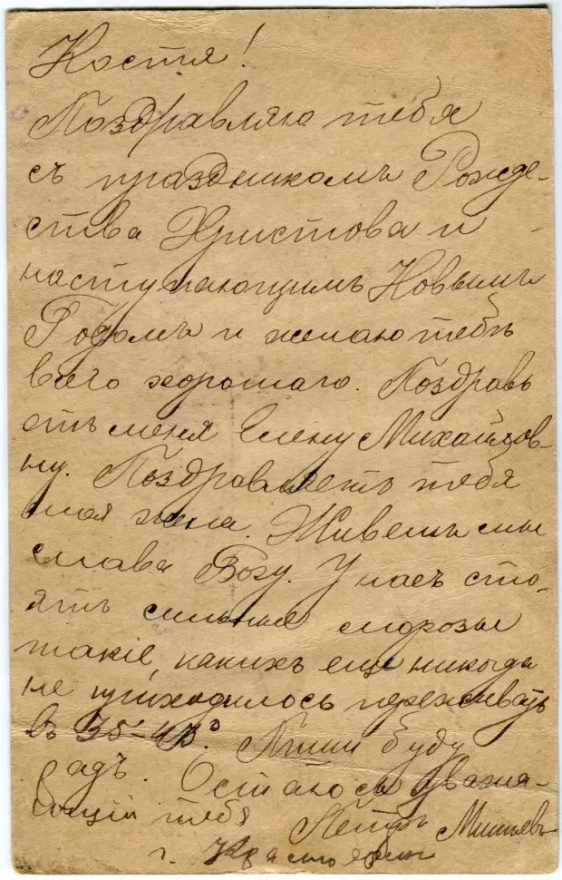 Костя!
Поздравляю тебя
съ праздникомъ Рожде-
ства Христова и
наступающимъ Новымъ
Годомъ и желаю тебѣ
всего хорошаго. Поздравь
отъ меня Елену Михайлов-
ну. Поздравляетъ тебя
моя жена. Живемъ мы
слава Богу. У насъ сто-
ятъ сильные морозы
такіе, какихъ еще никогда
не приходилось переживать
въ 35-
Пиши буду
радъ. Остаюсь уважа-
ющій тебя Петръ
г. Красноярскъ